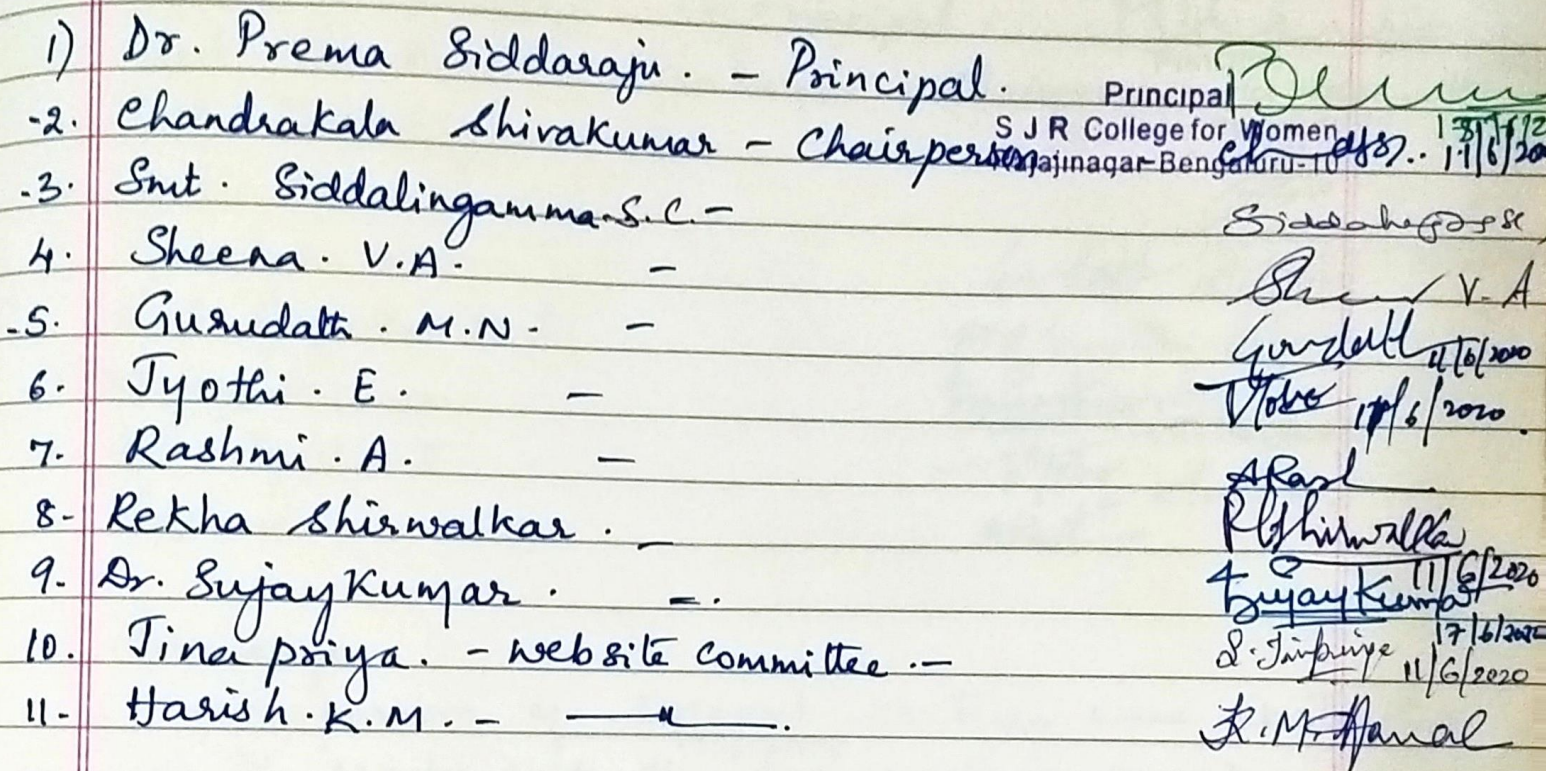 1) Dr. Prema Siddaraju. - Principal.
Principal
S J R College for Women
Rajajinagar-Bengaluru-10
-2. Chandrakala Shivakumar - Chairperson 11/6/20
-3. Smt. Siddalingamma.S.C.-
4. Sheena. V.A. - V.A
-5. Gurudatt. M.N. - Gurudatt 11/6/2020
6. Jyothi. E. - 11/6/2020.
7. Rashmi. A. - ARash
8- Rekha Shirwalkar. - RShirwalkar 11/6/2020
9- Dr. SujayKumar. -. SujayKumar 17/6/2020
10. Jina priya. - website committee.- S. Jinpriya 11/6/2020
11- Harish.K.M.- — " —. K.M.